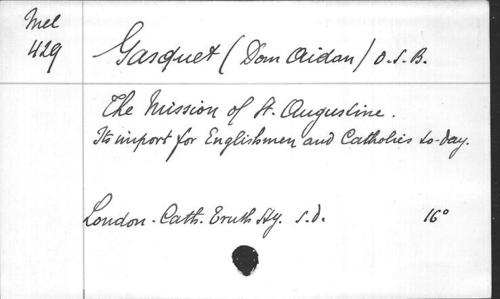 Mel
429
Gasquet (Dom Aidan) O.S.B.
The Mission of St. Augustine.
Its import for Englishmen and Catholics to-day.
London. Cath. Truth Sty. s.d. 16°